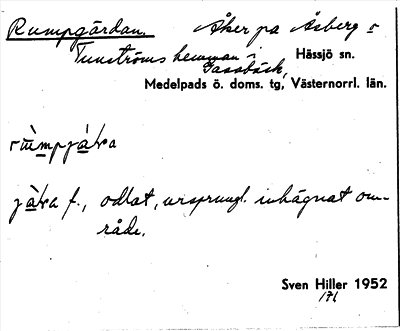 Rumpgärdan. Åker på Åsberg o
Tunströms hemman i Hässjö sn.
Medelpads ö. doms. tg, Västernorrl. län.
f., odlat, ursprungl. inhägnat om-
råde.
Sven Hiller 1952
171